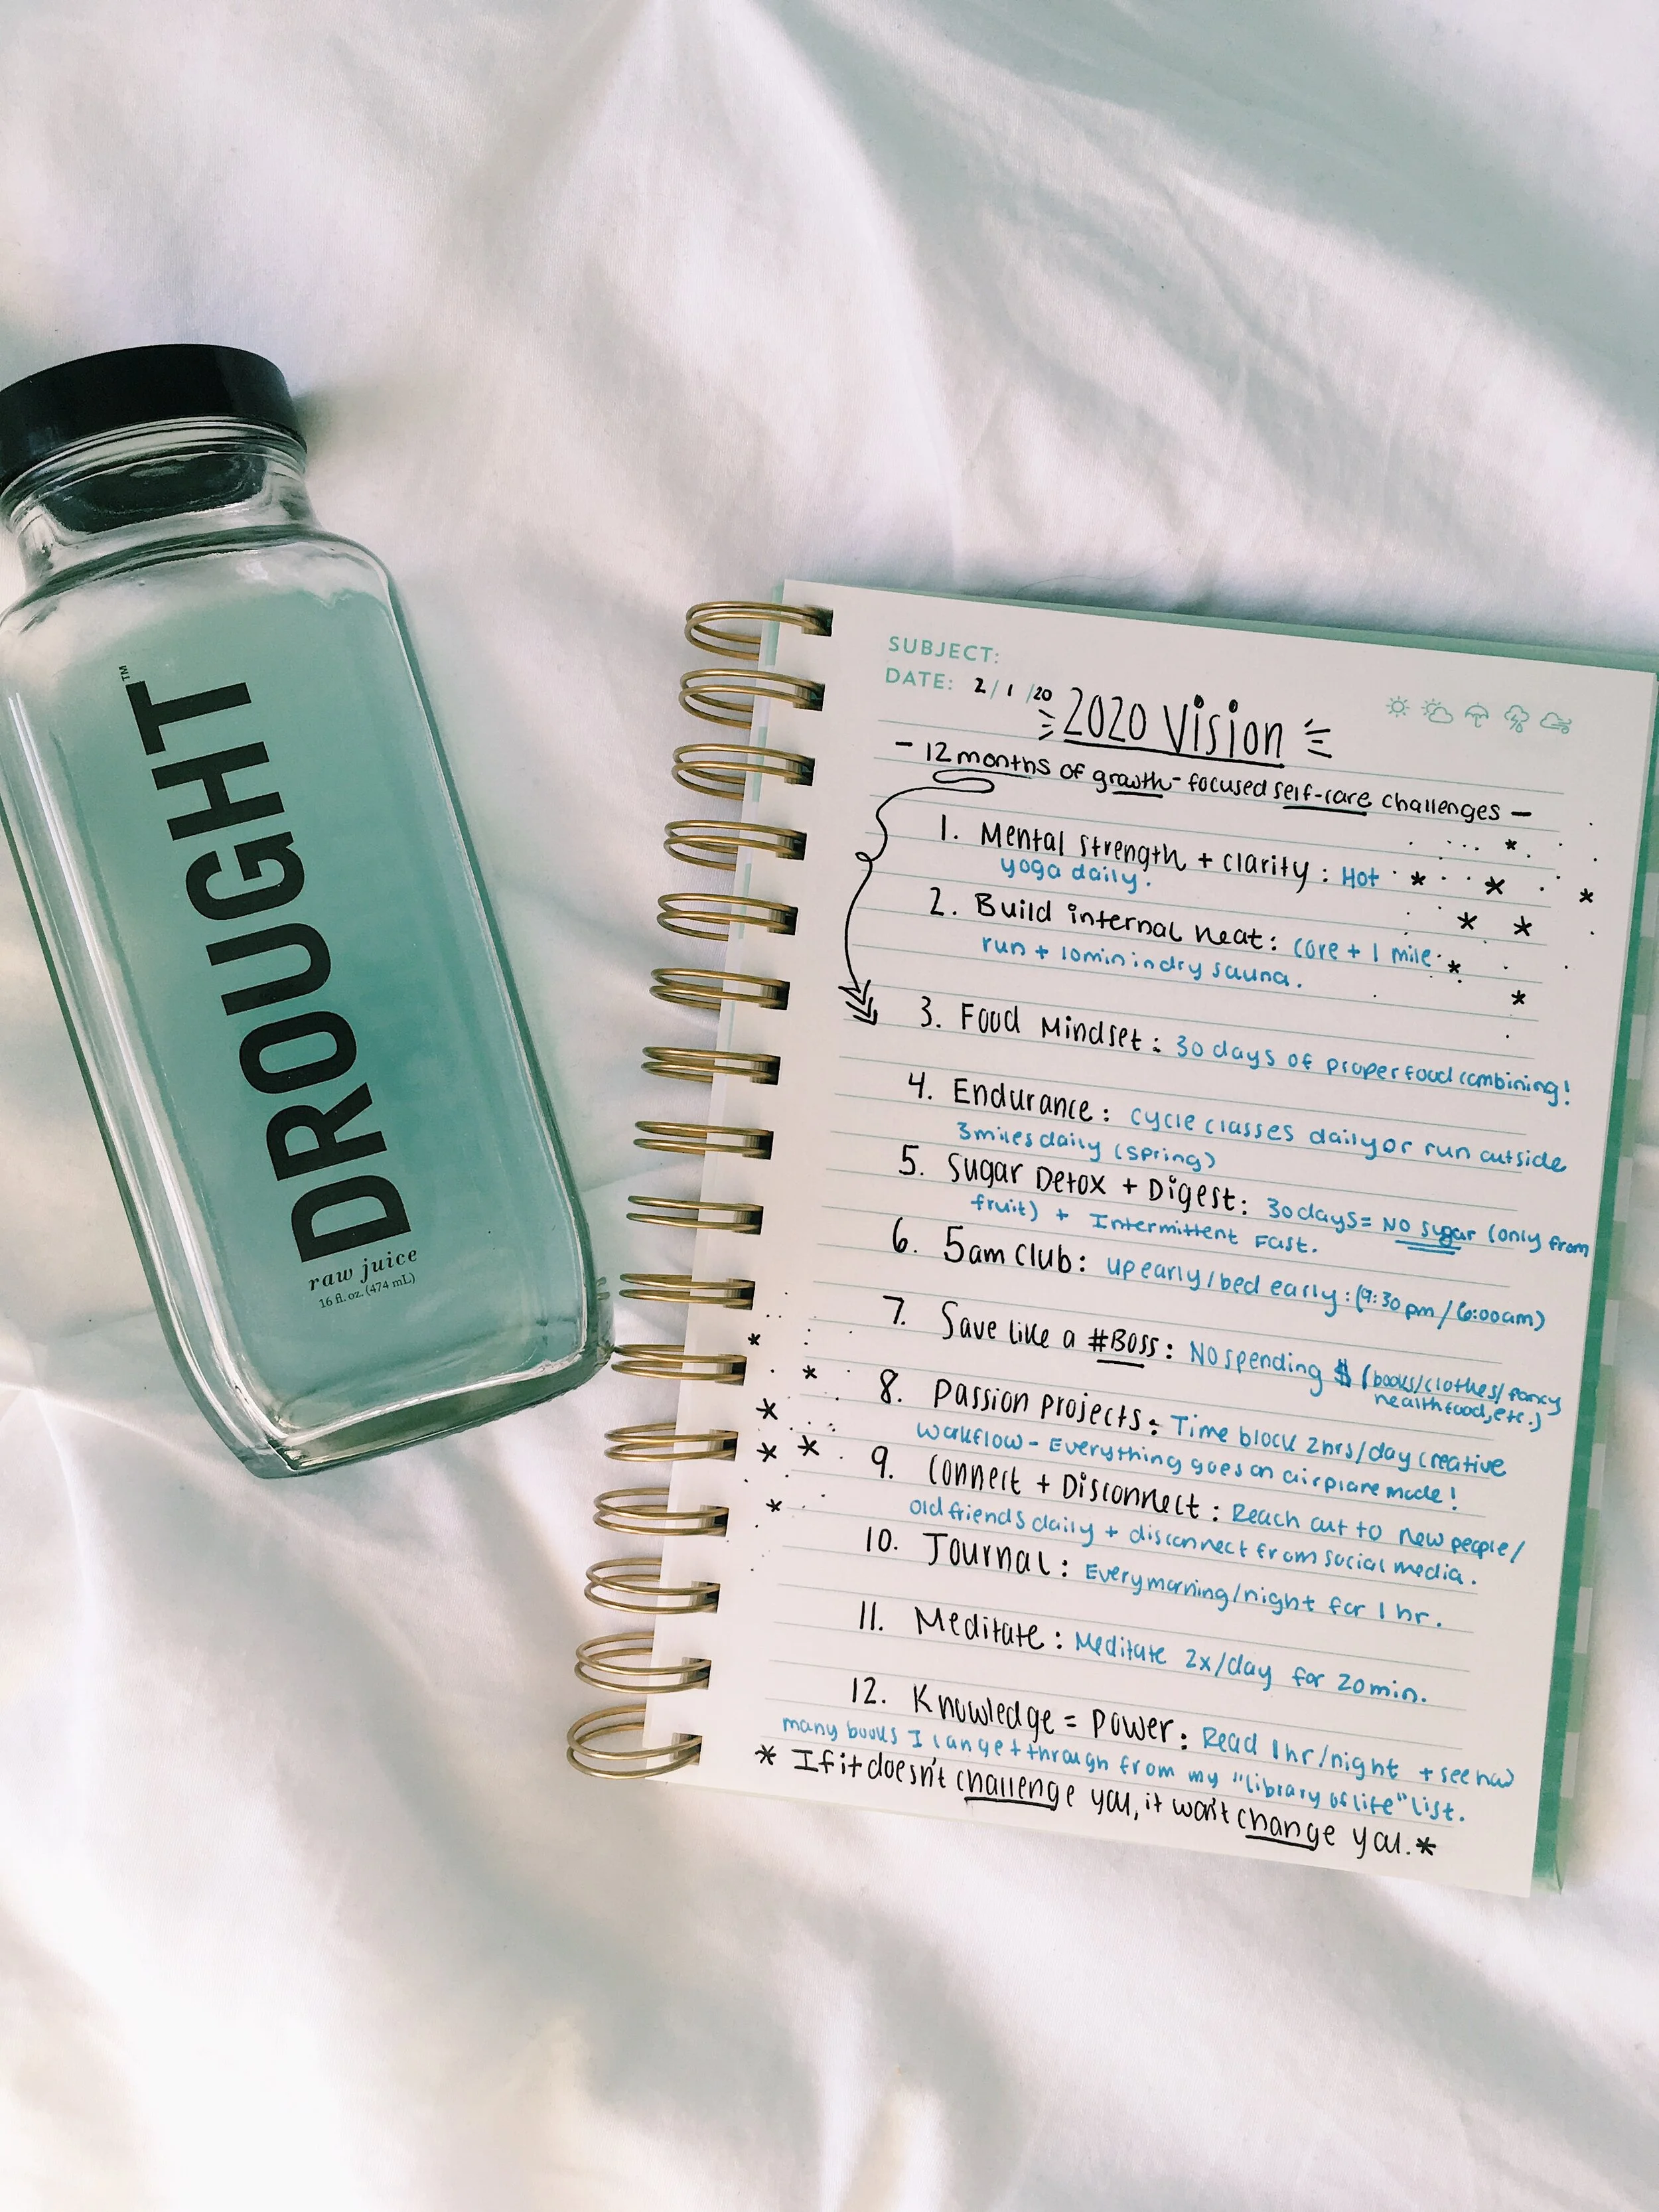 DROUGHT™
raw juice
16 fl. oz. (474 mL)
SUBJECT:
DATE: 2/1/20
2020 Vision
- 12 months of growth-focused self-care challenges -
1. Mental strength + clarity: Hot
yoga daily.
2. Build internal heat: core + 1 mile
run + 10min in dry sauna.
3. Food Mindset: 30 days of proper food combining!
4. Endurance: cycle classes daily or run outside
3 miles daily (spring)
5. Sugar Detox + Digest: 30 days = NO sugar (only from
fruit) + Intermittent Fast.
6. 5am Club: up early/bed early: (9:30pm/6:00am)
7. Save like a #Boss: No spending $ (books/clothes/fancy
health food, etc.)
8. Passion projects: Time block 2hrs/day creative
workflow - Everything goes on airplane mode!
9. Connect + Disconnect: Reach out to new people/
old friends daily + disconnect from social media.
10. Journal: Every morning/night for 1 hr.
11. Meditate: Meditate 2x/day for 20min.
12. Knowledge = Power: Read 1hr/night + see how
many books I can get through from my "library of life" list.
* If it doesn't challenge you, it won't change you. *